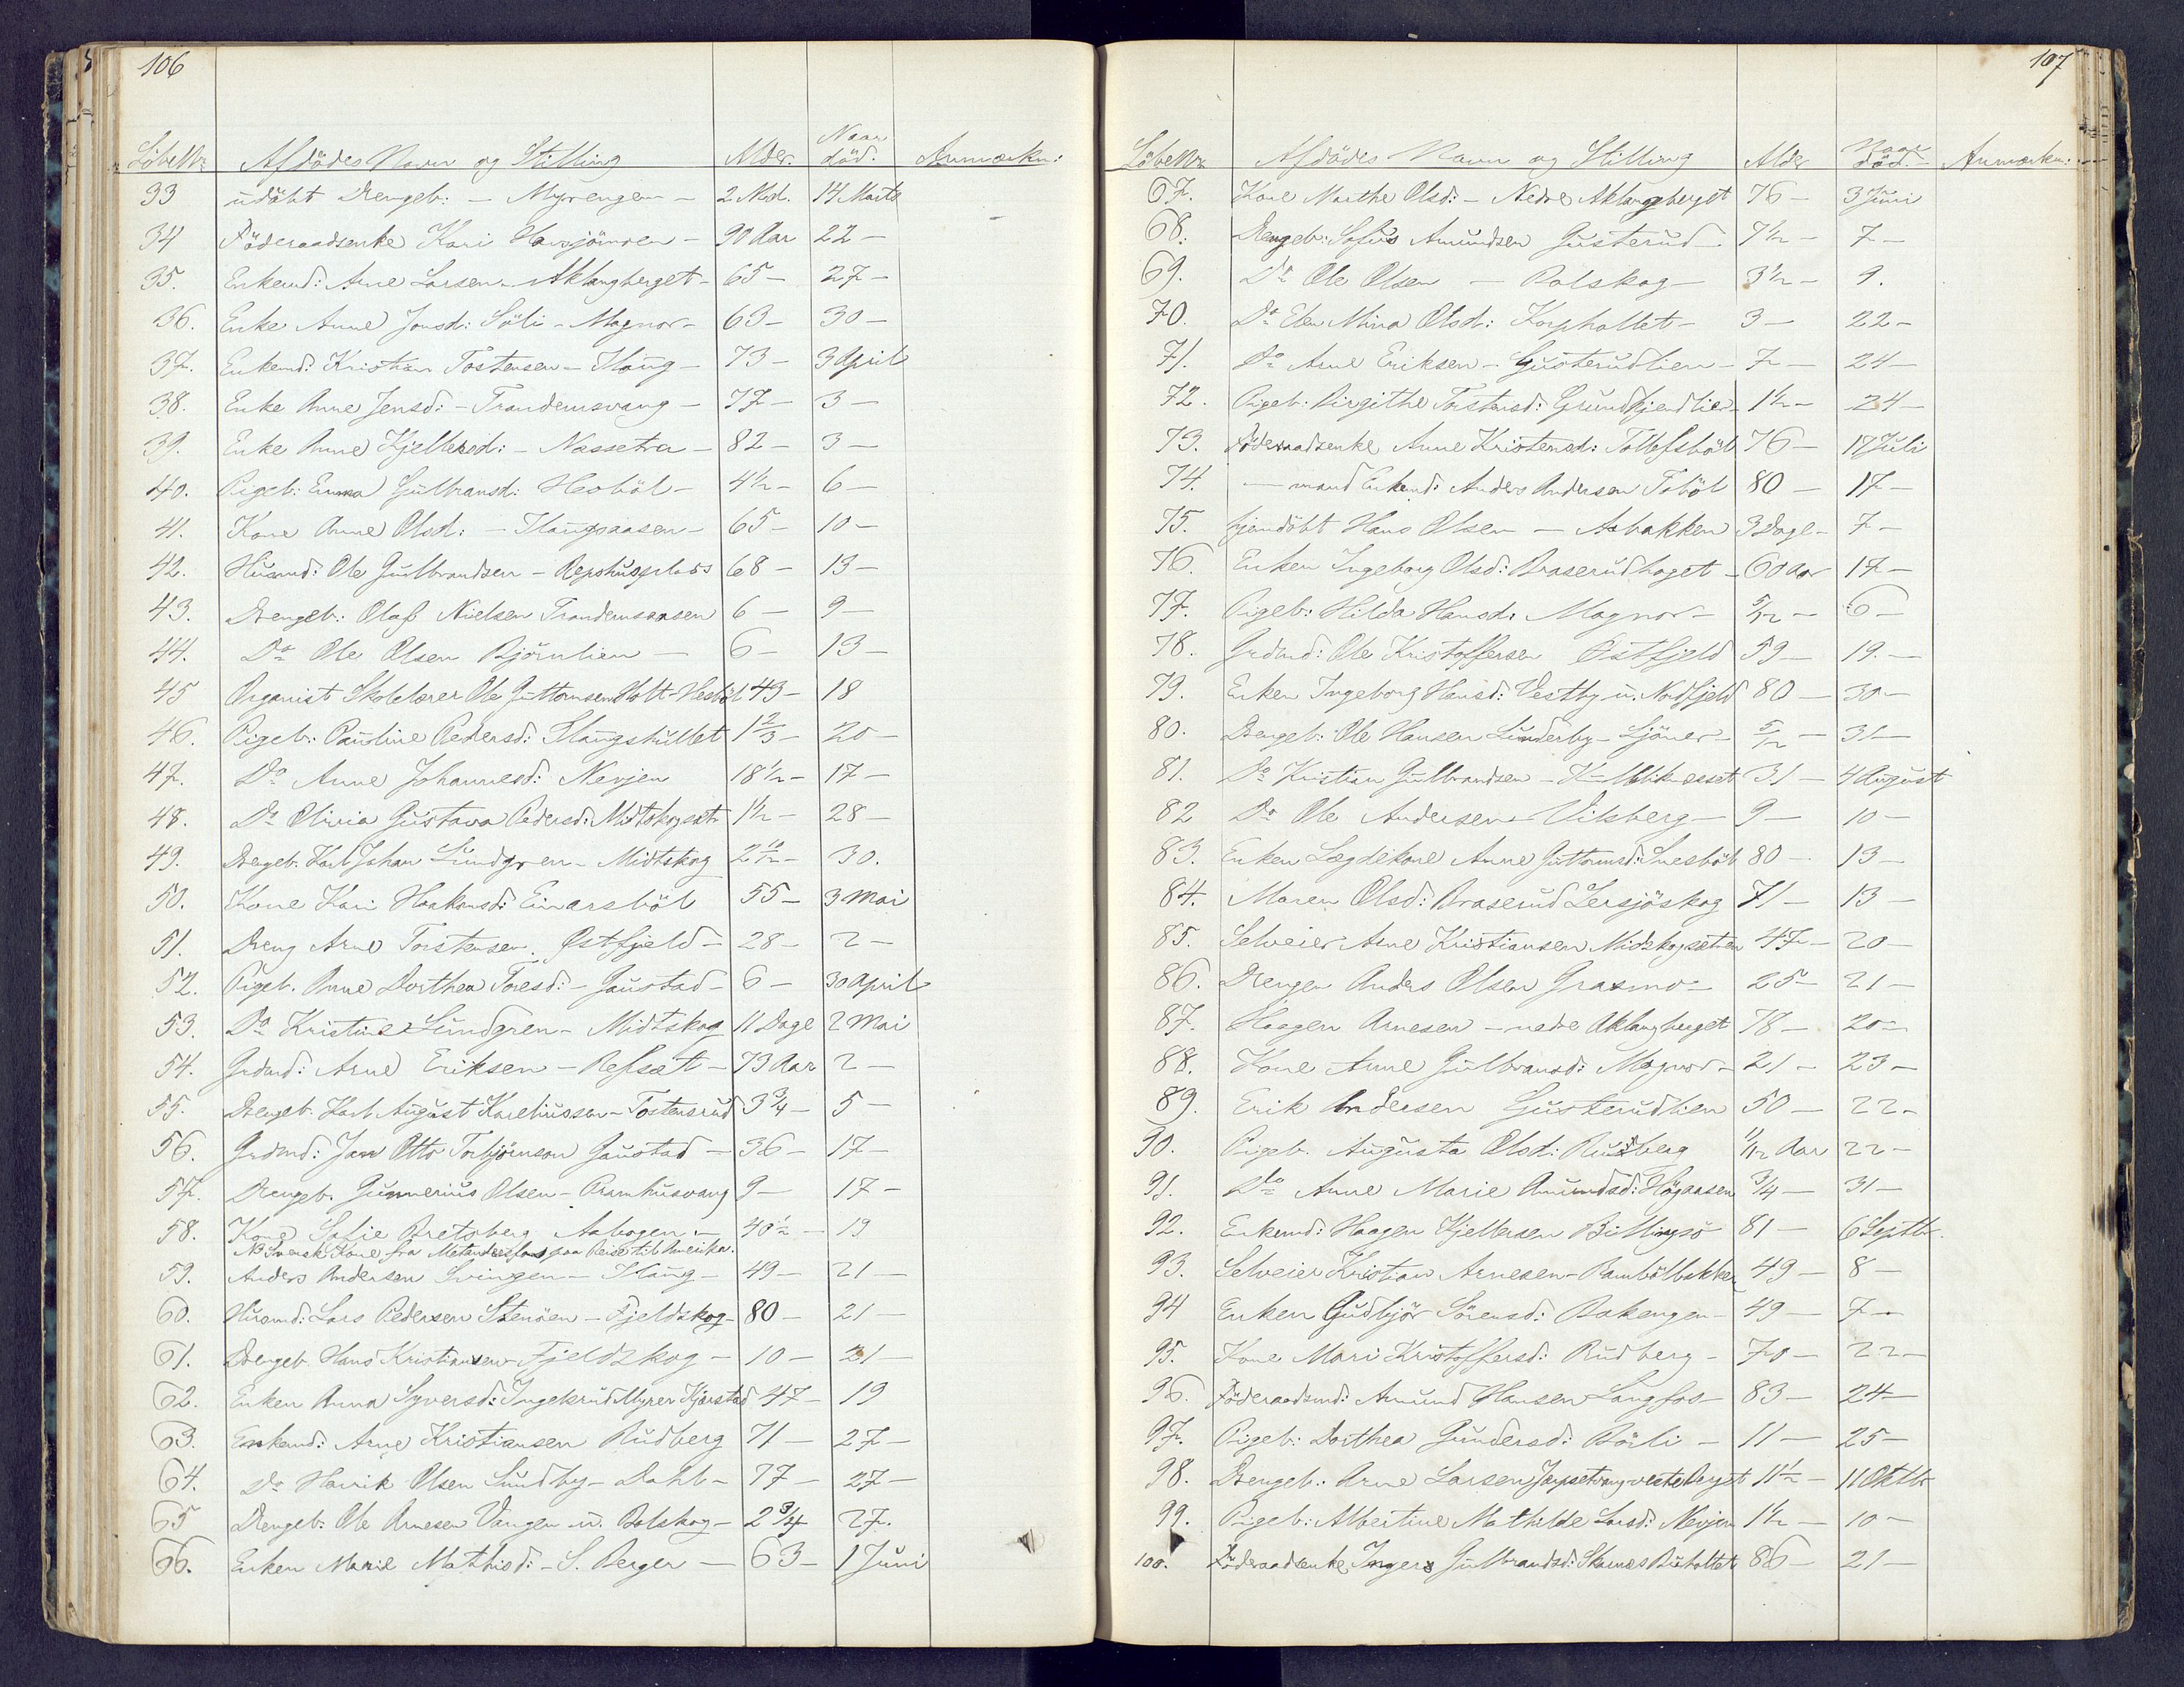 106
LöbeNr. Afdødes Navn og Stilling Alder. Naar död. Anmærkn:
33 udöbt Drengeb: - Myrengen - 2 Md. 14 Marts
34 Föderaadsenke Kari - 90 Aar 22 -
35. Enkemd: Arne Larsen - Aklangberget - 65 - 27 -
36. Enke Anne Jonsd: Söli - Magnor - 63 - 30 -
37. Enkemd: Kristian Tostensen - Haug - 73 - 3 April
38. Enke Anne Jensd: - Trandemsvang - 77 - 3 -
39. Enke Anne Kjellesd: - Nassetra - 82 - 3 -
40. Pigeb: Emma Gulbransd: Hesböl - 4 1/2 - 6 -
41. Kone Anne Olsd: - Haugsaasen - 65 - 10 -
42. Husmd: Ole Gulbrandsen - Repshusplads 68 - 13 -
43. Drengeb: Olaf Nielsen Trandemsaasen 6 - 9 -
44. Do Ole Olsen Björnlien - 6 - 13 -
45 Organist Skolelærer Ole Guttormsen Holt - Hesböl 43 - 18
46. Pigeb: Pauline Pedersd: 1 2/3 - 20 -
47. Do Anne Johannesd: Nevjen 18 1/2 - 17 -
48. Do Olivia Gustava Pedersd: Midtskogsæt 1 1/2 - 28 -
49. Drengeb. Karl Johan Lundgren - Midtskog 2 10/12 - 30.
50. Kone Kari Haakensd: Einarsböl 55 - 3 Mai
51. Dreng Arne Torstensen. Østfjeld - 28 - 2 -
52. Pigeb. Anne Dorthea Toresd: - Gaustad - 6 - 30 April
53. Do Kristine Lundgren - Midtskog 11 Dage 2 Mai
54. Grdmd: Arne Eriksen - Refsæt - 73 Aar 2 -
55. Drengeb. Karl August Kareliussen - Tostensrud 3 3/4 - 5 -
56. Grdmd: Jan Otto Torbjörnsen Gaustad - 36 - 17 -
57. Drengeb. Gunnerius Olsen - Pramhusvang 9 - 17 -
58. Kone Sofie Bretsberg Aabogen - 40 1/2 - 19
NB Svensk Kone fra paa Reise til Amerika.
59. Anders Andersen Svingen - Haug - 49 - 21 -
60. Husmd: Lars Pedersen Stensen - Fjeldskog - 80 - 21 -
61. Drengeb. Hans Kristiansen Fjeldskog - 10 - 21 -
62. Enken Anna Syversd: Ingelsrud Myrer Kjerstad 47 - 19
63. Enkemd: Arne Kristiansen Rudberg 71 - 27 -
64. Do Henrik Olsen Sundby - Dahl - 77 - 27 -
65 Drengeb: Ole Arnesen Vangen u. Bolskog - 2 3/4 27.
66. Enken Marie Mathisd: - S. Berger - 63 - 1 Juni
107
LöbeNr. Afdødes Navn og Stilling Alder Naar död. Anmærkn:
67. Kone Marthe Olsd: - Nedre Aklangberget 76 - 3 Juni
68. Drengeb: Sofus Amundsen Gusterud - 7 1/2 - 7 -
69. Do Ole Olsen - Bolskog - 3 1/2 - 9.
70. Do Elen Mina Olsd: Korphollet - 3 - 22 -
71. Do Arne Eriksen - Gusterudlien - 7 - 24 -
72. Pigeb: Birgithe Torstensd: 1 1/2 - 24 -
73. Föderaadsenke Anne Kristensd: Tollefsböl 76 - 17 Juli
74. - mand Enkemd: Anders Andersen Toböl 80 - 17 -
75. hjemdöbt Hans Olsen - Asbakken 3 Dage - 7 -
76. Enken Ingeborg Olsd: Braserudhoget - 60 Aar 17 -
77. Pigeb: Hilda Hansd: Magnor - 5/12 - 6 -
78. Grdmd: Ole Kristoffersen Østfjeld 59 - 19. -
79. Enken Ingeborg Hansd: Vestby u. Nordfjeld 80 - 30 -
80. Drengeb: Ole Hansen Lunderby - Sjöner - 5/12 - 31 -
81. Do Kristian Gulbrandsen - 31 - 4 August
82 Do Ole Andersen Vilsberg - 9 - 10 -
83. Enken Lægdekone Anne Guttormsd: 80 - 13 -
84. Maren Olsd: Braserud Lersjöskog 71 - 13 -
85. Selveier Arne Kristiansen Midskogsæteren 47 - 20 -
86. Drengen Anders Olsen Grasmo - 25 - 21 -
87. Haagen Arnesen - nedre Aklangberget 78 - 20 -
88. Kone Anne Gulbransd: Magnor - 21 - 23 -
89. Erik Andersen Gusterudlien 50 - 22 -
90. Pigeb. Augusta Olsd: Rudberg 11/12 Aar 22 -
91. Do Anne Marie Amundsd: Högaasen 3/4 - 31 -
92. Enkemd: Haagen Kjellesen Billingsö 81 - 6 Septbr.
93. Selveier Kristian Arnesen - Rambölbakken 49 - 8 -
94 Enken Gudbjör Sörensd: Bakengen - 49 - 7 -
95. Kone Mari Kristoffersd: Rudberg - 70 - 22 -
96. Föderaadsmd: Amund Hansen Langfos - 83 - 24 -
97. Pigeb: Dorthea Gundersd: Börli - 11 - 25 -
98. Drengeb: Arne Larsen Jarpsetvang vestre Berget 11 1/2 - 11 Oktbr
99. Pigeb: Albertine Mathilde Larsd: Nevjen 1 1/2 - 10 -
100. Föderaadsenke Inger Gulbrandsd: Skarnes Buholtet 86 - 21 -